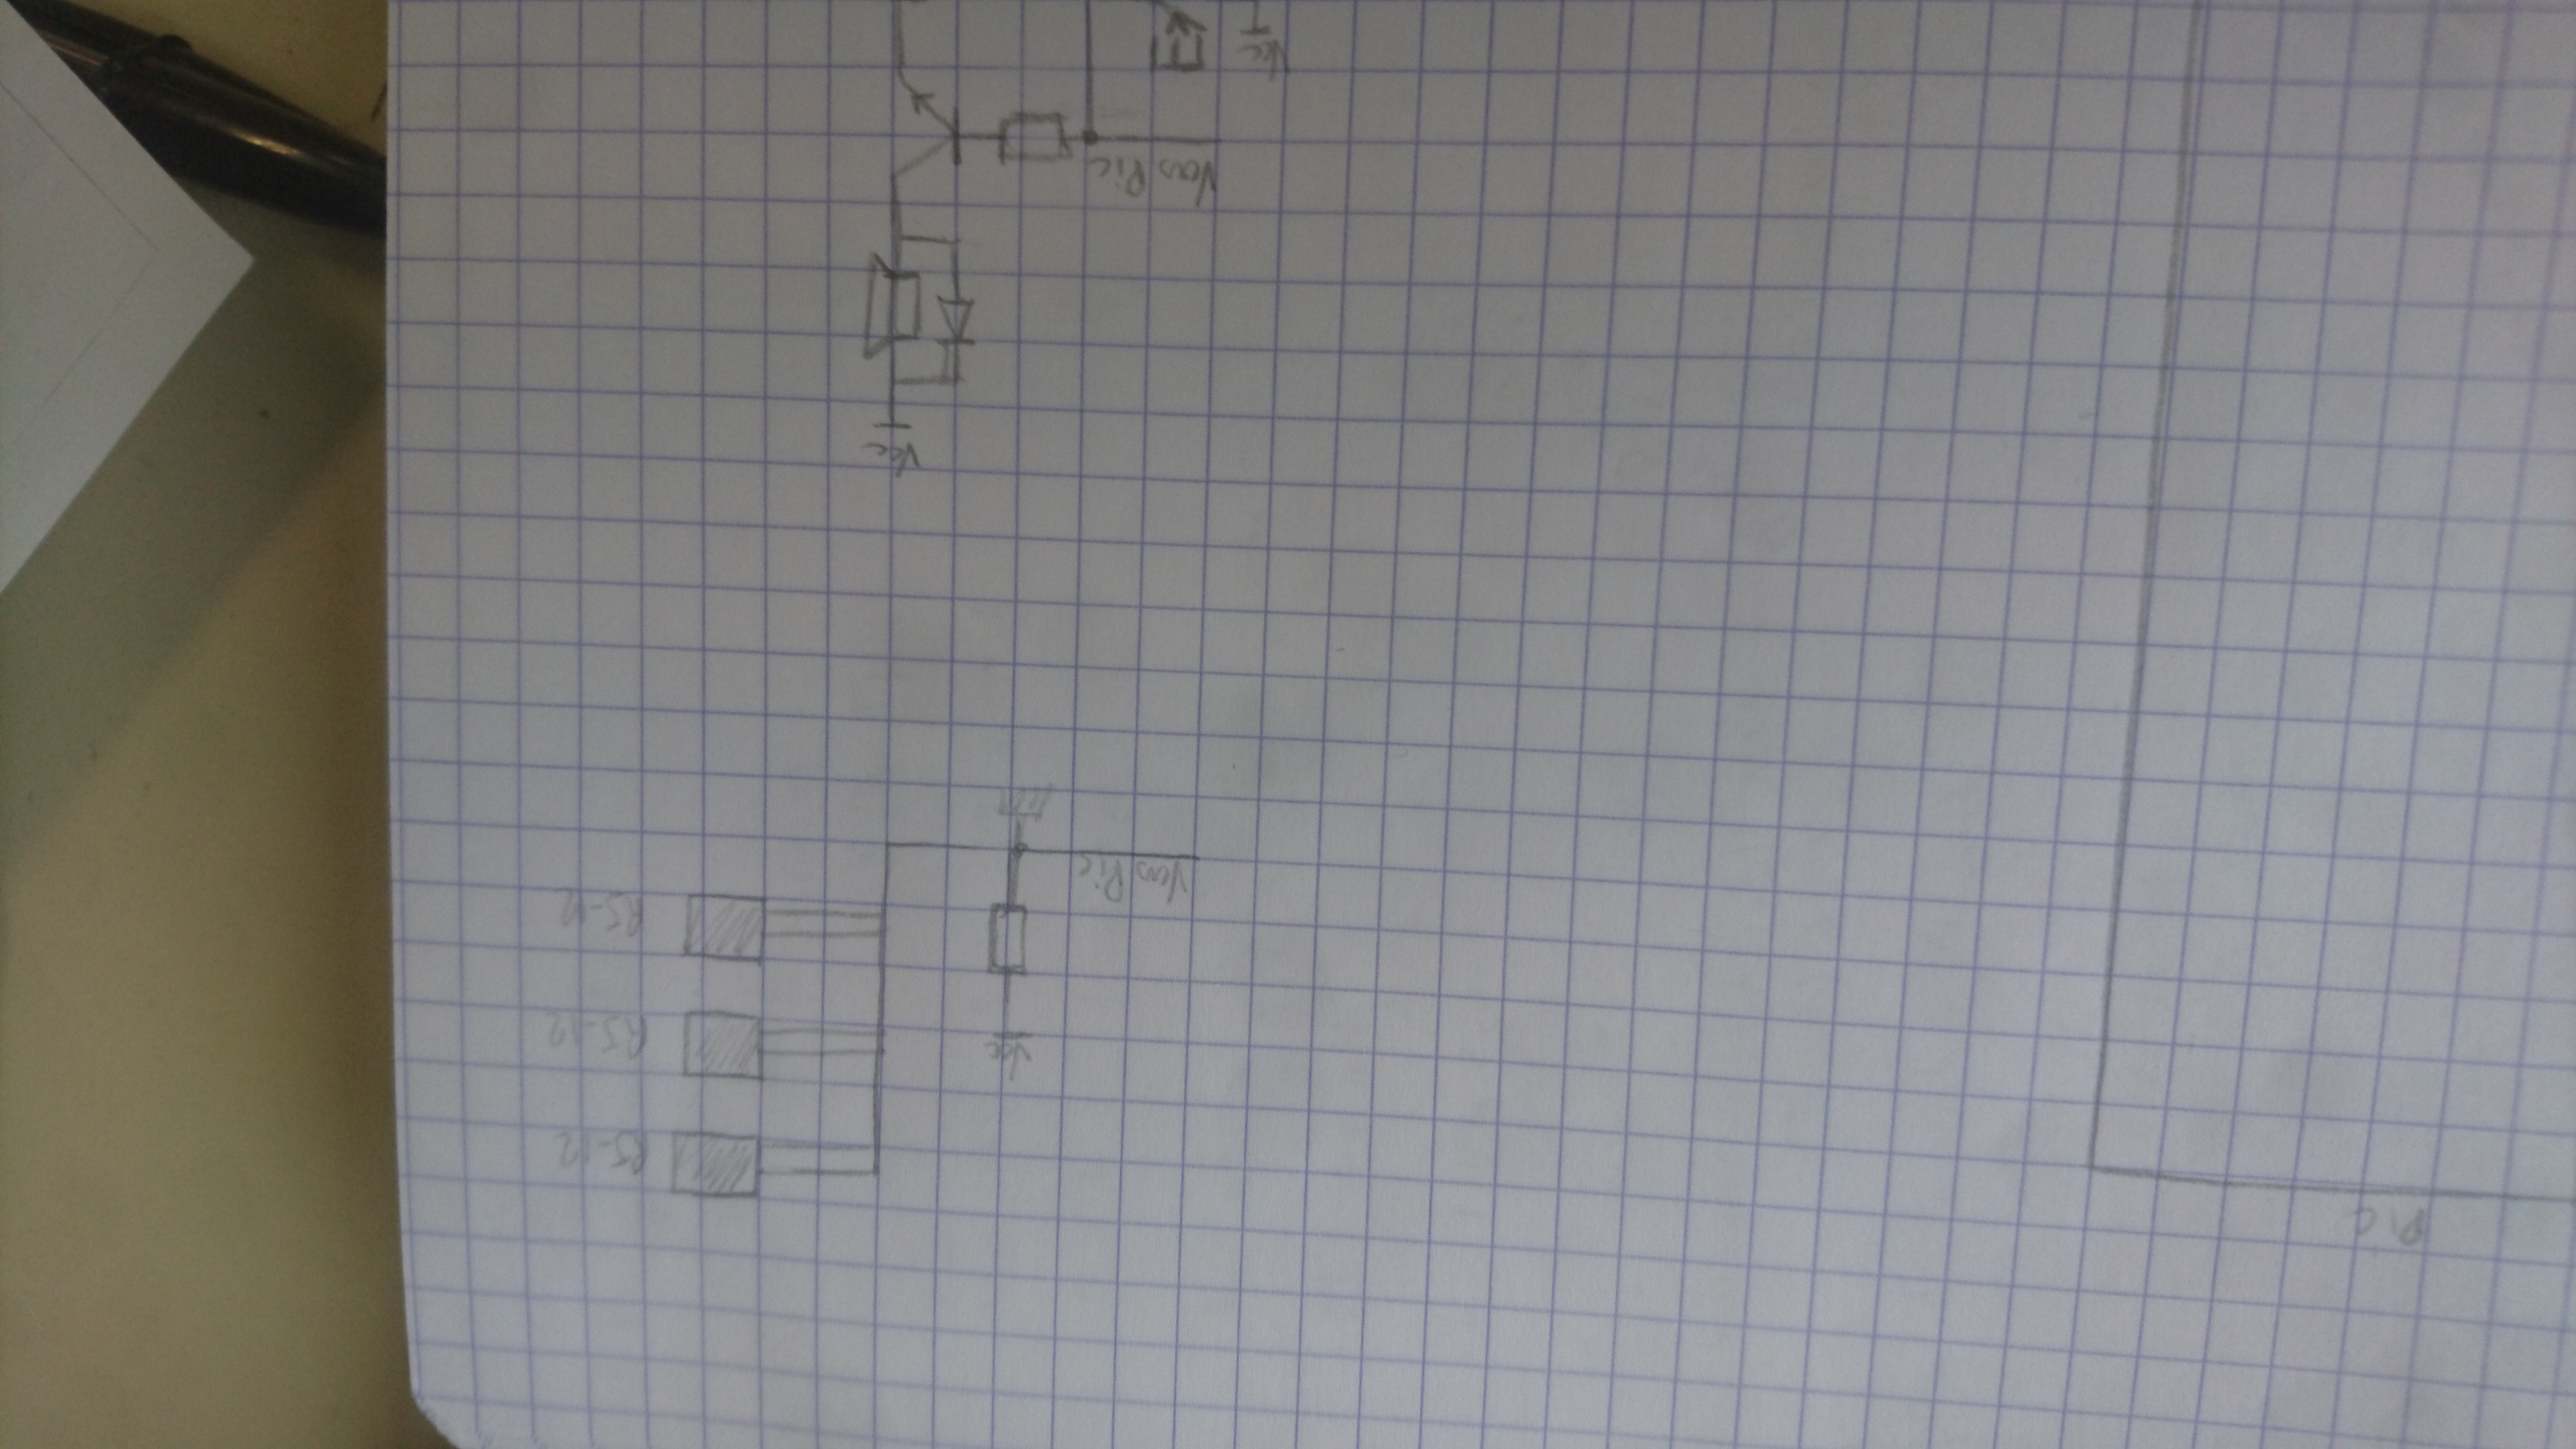 Pic
RJ-12
Vcc
RJ-12
RJ-12
Vers Pic
Vcc
Vers Pic
Vcc